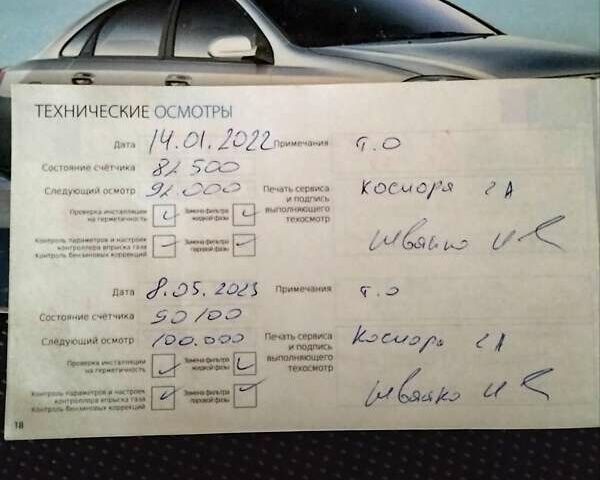 ТЕХНИЧЕСКИЕ ОСМОТРЫ
Дата 14.01.2022 Примечания Т.О
Состояние счётчика 82 500
Следующий осмотр 92.000 Печать сервиса и подпись выполняющего техосмотр Косморя 2А
Проверка инсталляции на герметичность Замена фильтра жидкой фазы
Контроль параметров и настроек контроллера впрыска газа Контроль бензиновых коррекций Замена фильтра паровой фазы
Швайко И
Дата 8.05.2023 Примечания Т.О
Состояние счётчика 90100
Следующий осмотр 100.000 Печать сервиса и подпись выполняющего техосмотр 2А
Проверка инсталляции на герметичность Замена фильтра жидкой фазы
Контроль параметров и настроек контроллера впрыска газа Контроль бензиновых коррекций Замена фильтра паровой фазы
Швайко И
18